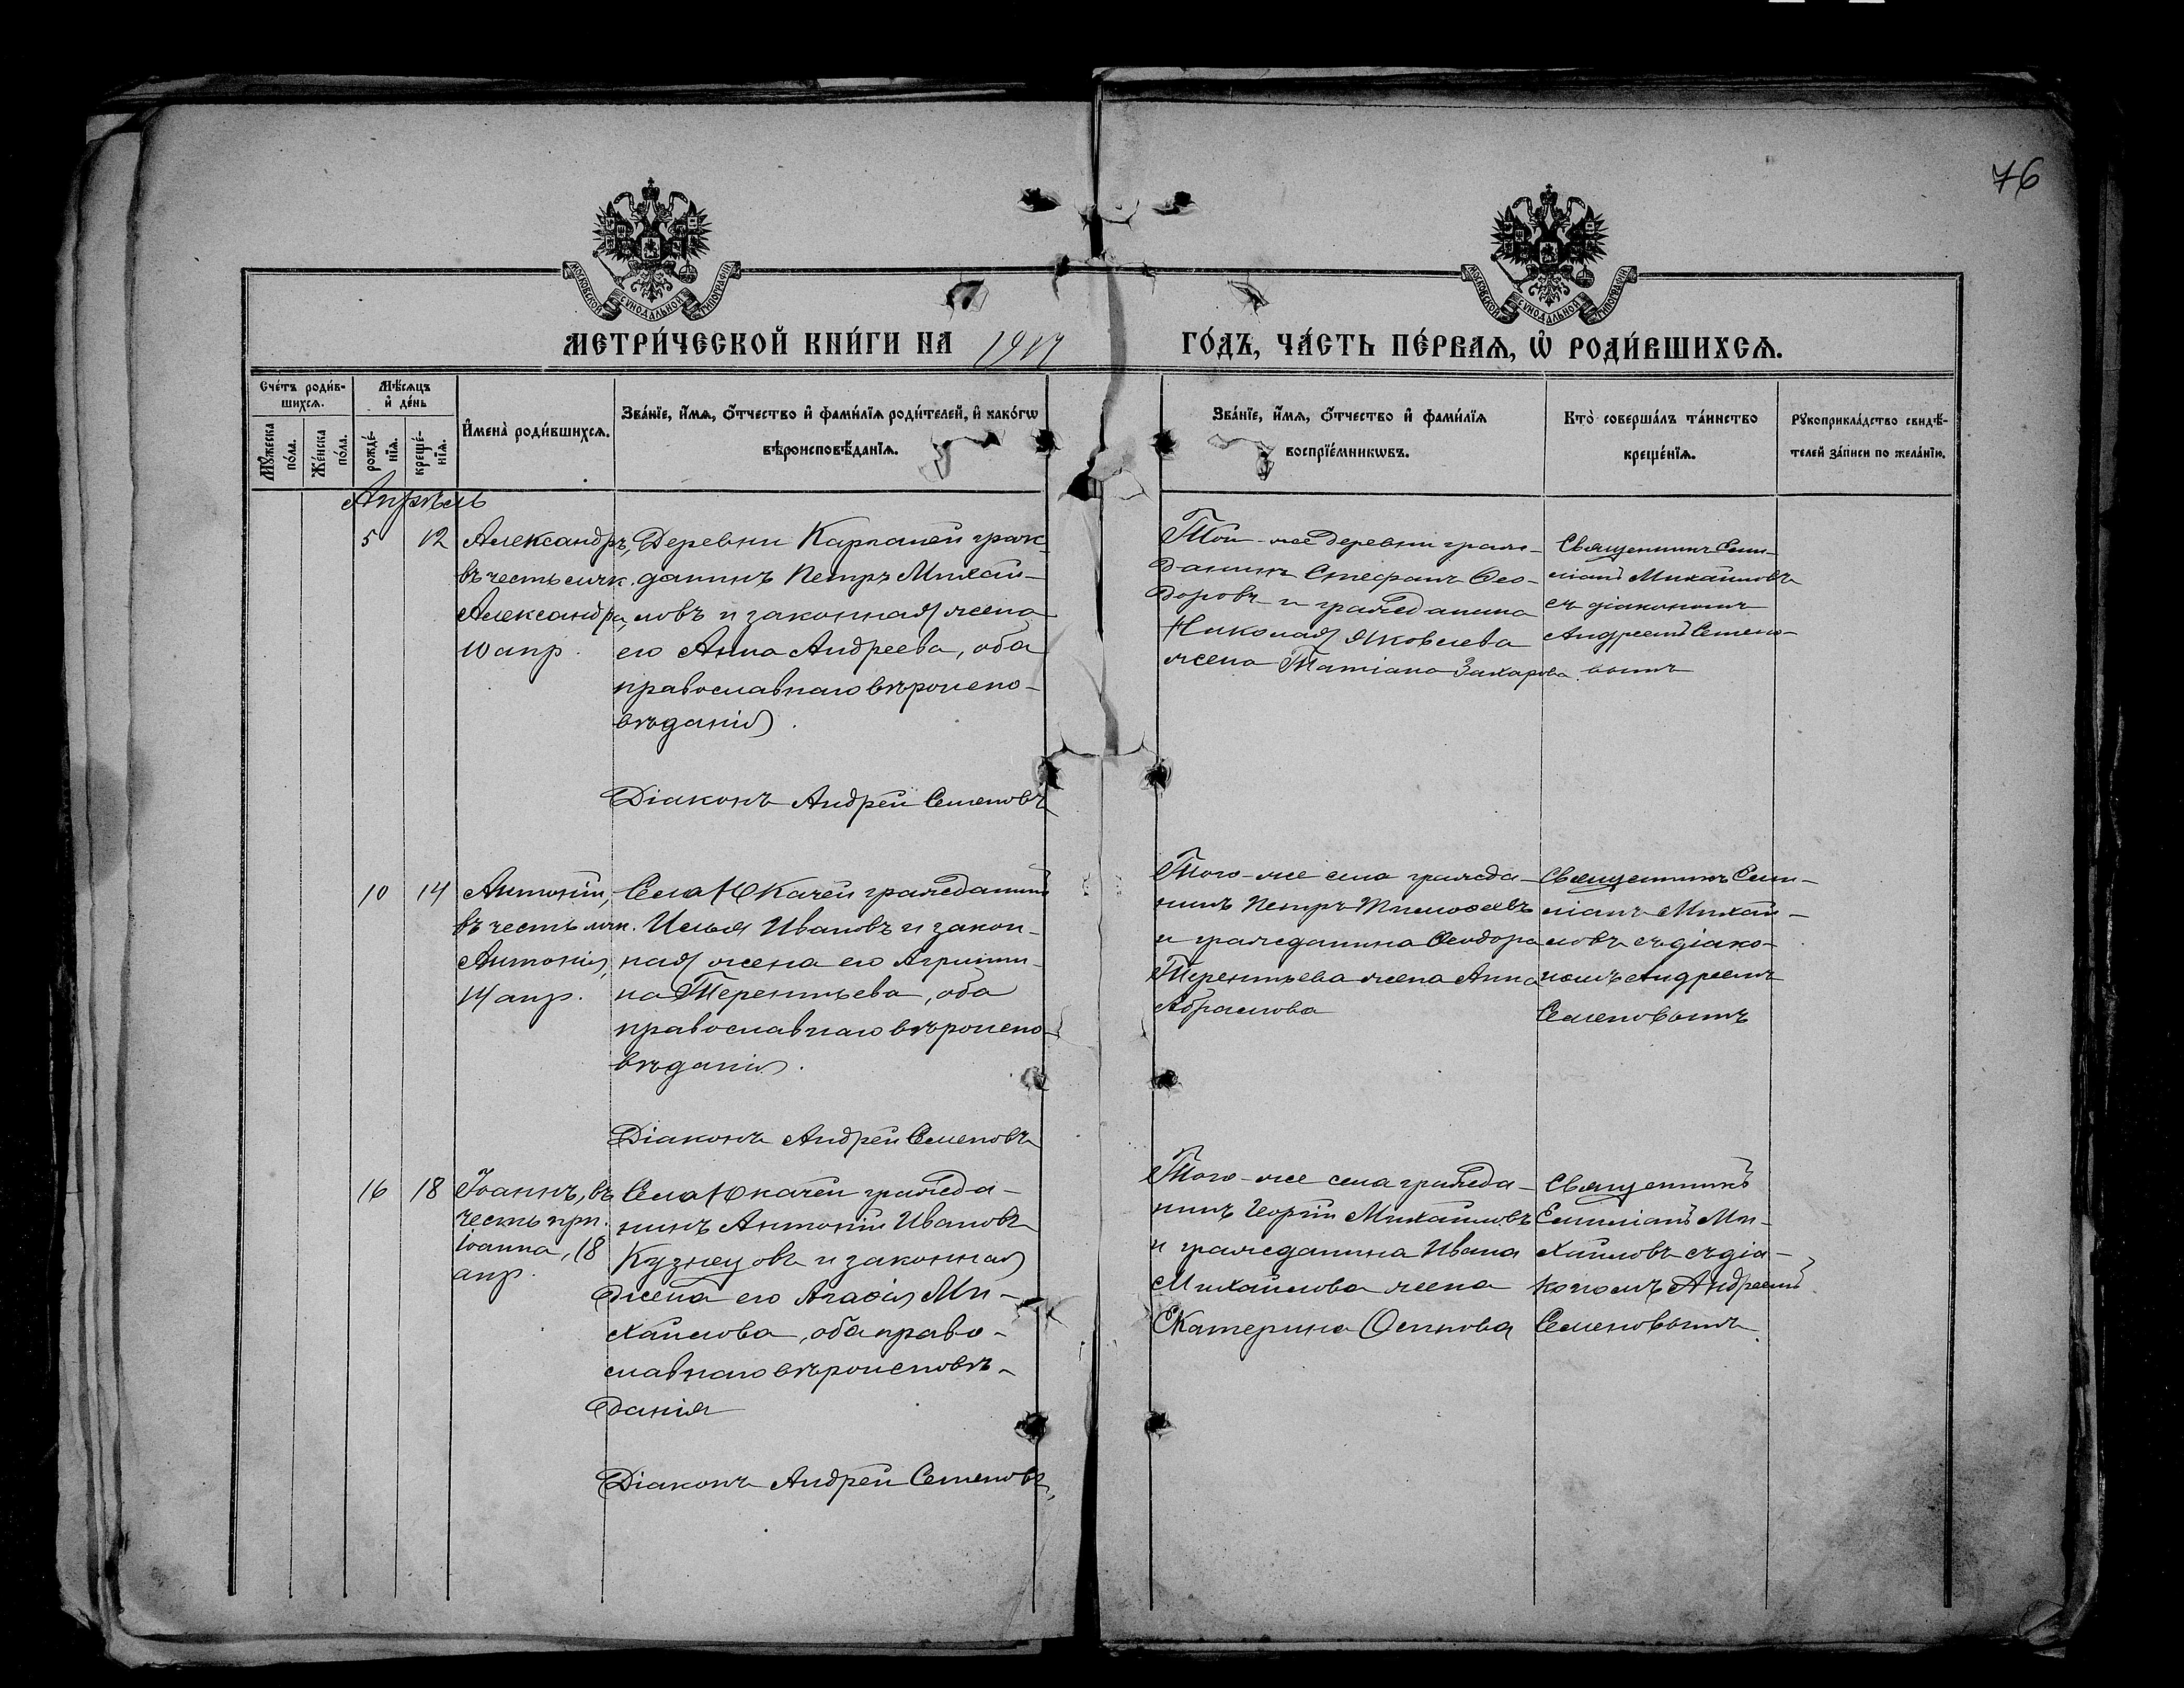 76
МОСКОВСКОЙ СѴНОДАЛЬНОЙ ТИПОГРАФІИ
МОСКОВСКОЙ СѴНОДАЛЬНОЙ ТИПОГРАФІИ
МЕТРИ́ЧЕСКОЙ КНИ́ГИ НА 1917 ГО́ДЪ, ЧА́СТЬ ПЕ́РВАѦ, Ѡ҆ РОДИ́ВШИХСѦ.
Сче́тъ роди́в-
шихсѧ.
Мꙋ́жеска
по́ла.
Же́нска
по́ла.
Мѣ́сѧцъ
и҆ де́нь
рожде́-
нїѧ.
креще́-
нїѧ.
И҆мена̀ роди́вшихсѧ.
Зва́нїе, и҆́мѧ, ѻ҆́тчество и҆ фами́лїѧ роди́телей, и҆ како́гѡ
вѣроисповѣ́данїѧ.
Зва́нїе, и҆́мѧ, ѻ҆́тчество и҆ фами́лїѧ
воспрїе́мникѡвъ.
Кто̀ соверша́лъ та́инство
креще́нїѧ.
Рꙋкоприкла́дство свидѣ́-
телей за́писи по жела́нїю.
Апрѣль
5 12
Александръ,
въ честь мчк.
Александра,
10 апр.
Деревни Карпачей граж-
данинъ Петръ Михай-
ловъ и законная жена
его Анна Андреева, оба
православнаго вѣроиспо-
вѣданія.
Діаконъ Андрей Семеновъ
Той-же деревни граж-
данинъ Стефанъ Ѳео-
доровъ и гражданина
Николая Яковлева
жена Татіана Захарова.
Священникъ Еми-
ліанъ Михайловъ
съ діакономъ
Андреемъ Семено-
вымъ
10 14
Антоній,
въ честь мчк.
Антонія,
14 апр.
Села Юкачей гражданинъ
Илья Ивановъ и закон-
ная жена его Агрипи-
на Терентьева, оба
православнаго вѣроиспо-
вѣданія.
Діаконъ Андрей Семеновъ
Того-же села гражда-
нинъ Петръ Тимоѳеевъ
и гражданина Ѳеодора
Терентьева жена Анна
Абрамова
Священникъ Еми-
ліанъ Михай-
ловъ съ діако-
номъ Андреемъ
Семеновымъ
16 18
Іоаннъ, въ
честь прп.
Іоанна, 18
апр.
Села Юкачей гражда-
нинъ Антоній Ивановъ
Кузнецовъ и законная
жена его Агаѳія Ми-
хайлова, оба право-
славнаго вѣроисповѣ-
данія
Діаконъ Андрей Семеновъ
Того-же села гражда-
нинъ Георгій Михайловъ
и гражданина Ивана
Михайлова жена
Екатерина Осипова
Священникъ
Емиліанъ Ми-
хайловъ съ діа-
кономъ Андреемъ
Семеновымъ.